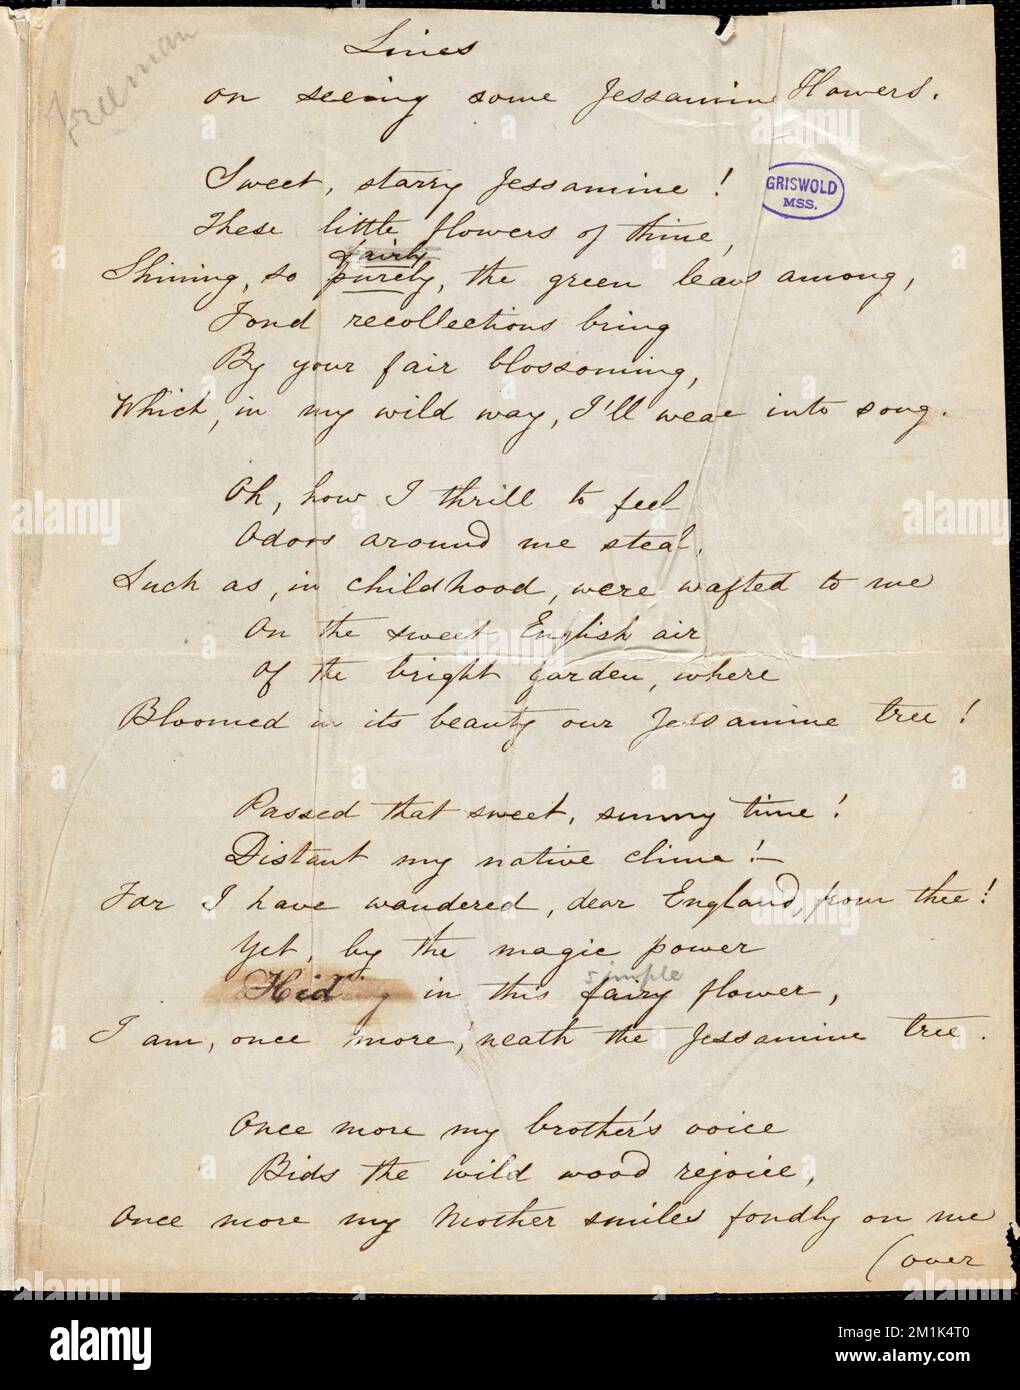 Freeman
Lines
on seeing some Jessamine Flowers.
GRISWOLD
MSS.
Sweet, starry Jessamine!
These little flowers of thine,
fairly
Shining, so purely, the green leaves among,
Fond recollections bring
By your fair blossoming,
Which, in my wild way, I'll weave into song.
Oh, how I thrill to feel
Odors around me steal,
Such as, in childhood, were wafted to me
On the sweet English air
Of the bright garden, where
Bloomed in its beauty our Jessamine tree!
Passed that sweet, sunny time!
Distant my native clime!—
Far I have wandered, dear England, from thee!
Yet, by the magic power
simple
Hiding in this fairy flower,
I am, once more, neath the Jessamine tree.
Once more my brother's voice
Bids the wild wood rejoice,
Once more my Mother smiles fondly on me
(over
alamy
Image ID: 2M1K4T0
www.alamy.com